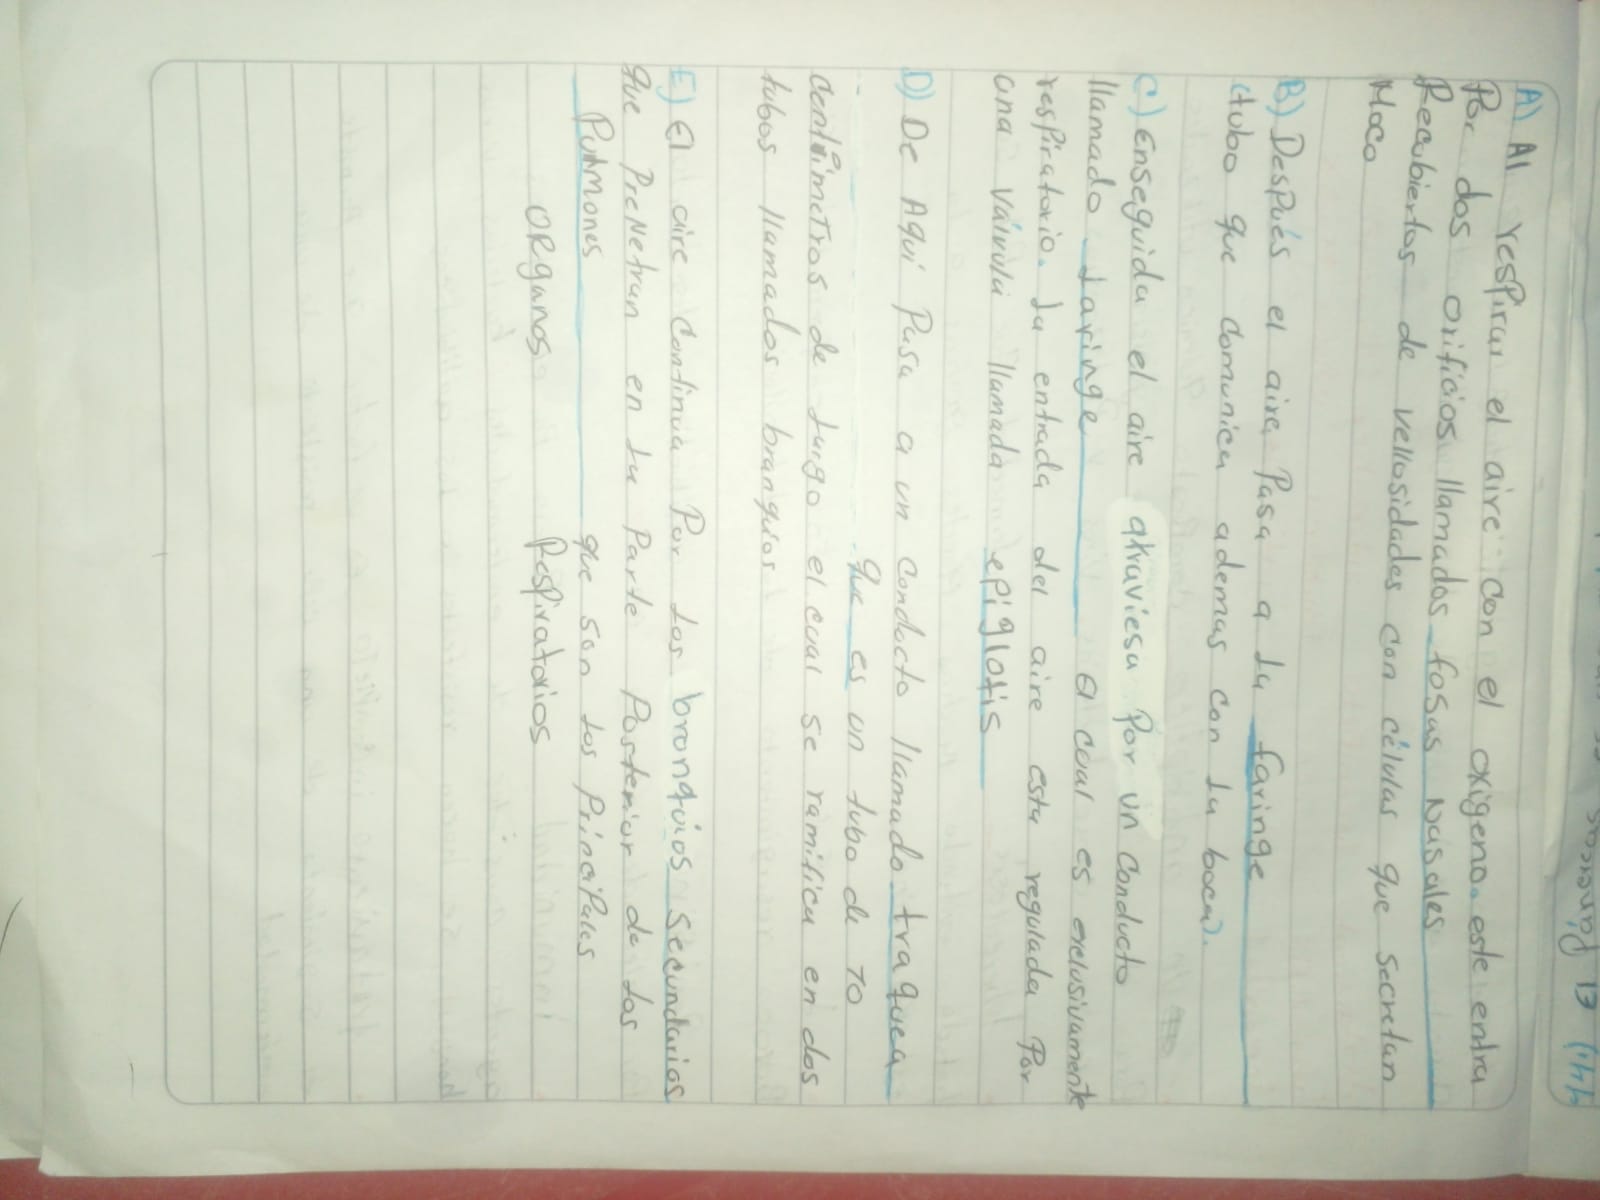 A) Al respirar el aire con el oxigeno. este entra
Por dos orificios llamados fosas Nasales
Recubiertos de vellosidades con células que secretan
Moco
B) Después el aire Pasa a la faringe
(tubo que comunica ademas con la boca).
C) Enseguida el aire atraviesa Por un conducto
llamado laringe el cual es exclusivamente
respiratorio. la entrada del aire esta regulada Por
una válvula llamada epiglotis
D) De Aquí Pasa a un conducto llamado traquea
que es un tubo de 10
centimetros de largo el cual se ramifica en dos
tubos llamados branquios
E) El aire continua Por los bronquios secundarios
que Prenetran en la Parte Posterior de los
Pulmones que son los Principales
ORganos Respiratorios
(14) El 13